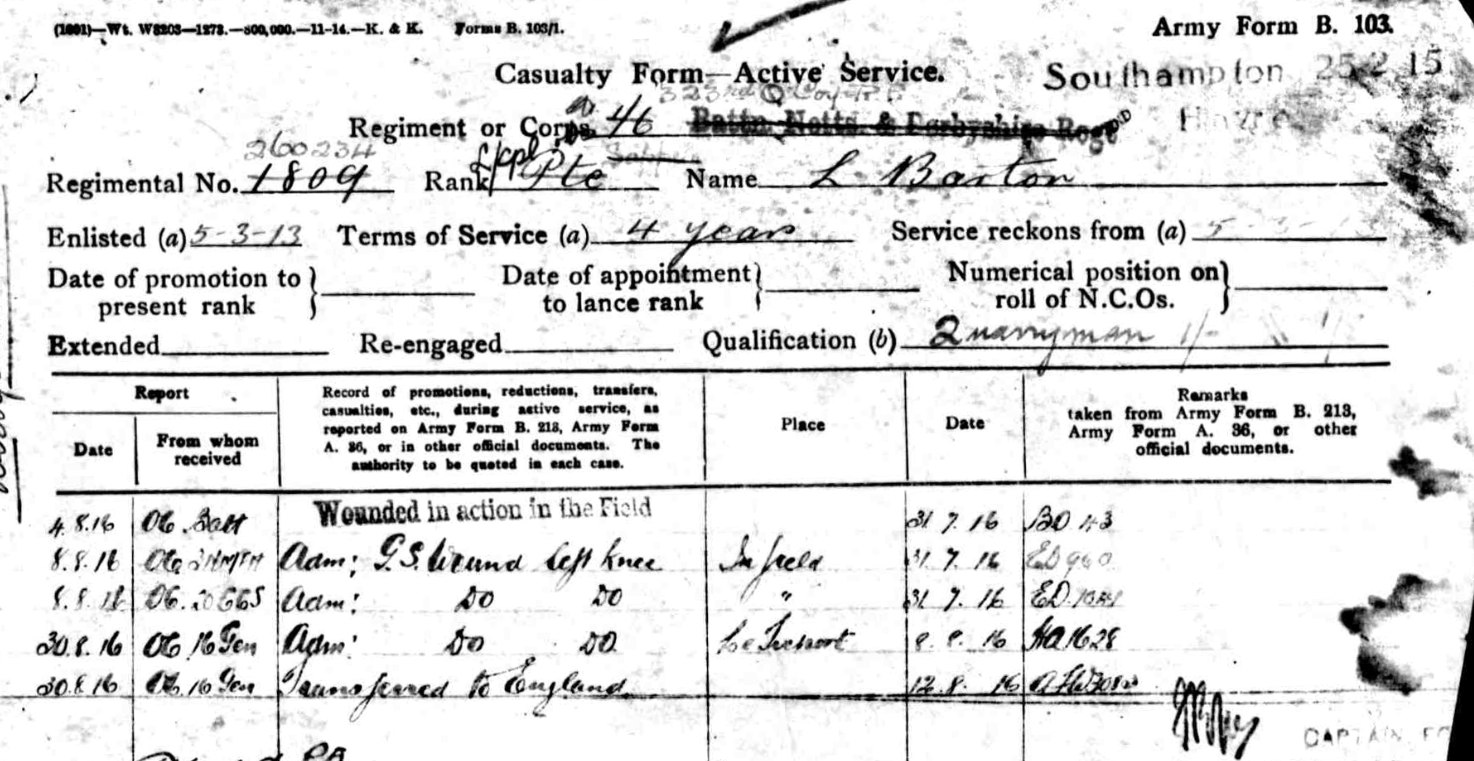 (1991)—Wt. W8203—1273.—800,000.—11-14.—K. & K. Forms B. 103/1.
Army Form B. 103.
Casualty Form—Active Service.
Southampton 25 2 15
Regiment or Corps 46 Battn Notts. & Derbyshire Regt
260234
Regimental No. 1809 Rank L/Cpl Pte Name L Barton
Enlisted (a) 5-3-13 Terms of Service (a) 4 year Service reckons from (a) 5
Date of promotion to present rank } Date of appointment to lance rank } Numerical position on roll of N.C.Os. }
Extended Re-engaged Qualification (b) Quarryman
Report
Date
From whom received
Record of promotions, reductions, transfers, casualties, etc., during active service, as reported on Army Form B. 213, Army Form A. 36, or in other official documents. The authority to be quoted in each case.
Place
Date
Remarks taken from Army Form B. 213, Army Form A. 36, or other official documents.
4.8.16 OC Batt Wounded in action in the Field 31 7. 16 BO 43
8.8.16 OC Adm: G.S. Wound left knee In field 31 7. 16
8.8.16 OC. 20 CCS Adm: DO DO " 31 7. 16
30.8.16 OC 16 Gen Adm: DO DO Le Treport 8. 8. 16 HA 1628
30.8.16 OC 16 Gen Transferred to England 12.8.16
CAPTAIN